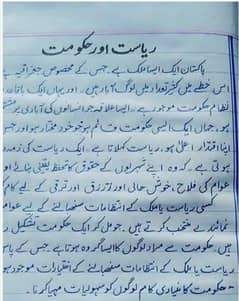 ریاست اور حکومت
پاکستان ایک ایسا ملک ہے۔ جس کے مخصوص جغرافیہ
اس خطے میں کثیر تعداد میں لوگ آباد ہیں۔ اور یہاں ایک باقاعدہ
نظام حکومت موجود ہے۔ ایسا علاقہ جو انسانوں کی آبادی پر
ہو، جہاں ایک ایسی حکومت قائم ہو جو خود مختار ہو اور جس
اپنا اقتدار اعلیٰ ہو، ریاست کہلاتا ہے۔ ایک ریاست کی ذمہ
ہوتی ہے۔ کہ وہ اپنے شہریوں کے حقوق کا تحفظ یقینی بنائے اور
عوام کی فلاح، خوش حالی اور ترقی کے لیے کام
کسی ریاست یا ملک کے انتظامات سنبھالنے کے لیے عوام
نمائندے منتخب کرتے ہیں۔ جو مل کر ایک حکومت تشکیل
ہیں۔ حکومت سے مراد لوگوں کا ایسا گروہ ہوتا ہے جس کے پاس
ریاست یا ملک کے انتظامات سنبھالنے کے اختیارات موجود
۔ حکومت کا بنیادی کام لوگوں کو سہولیات مہیا کرنا۔